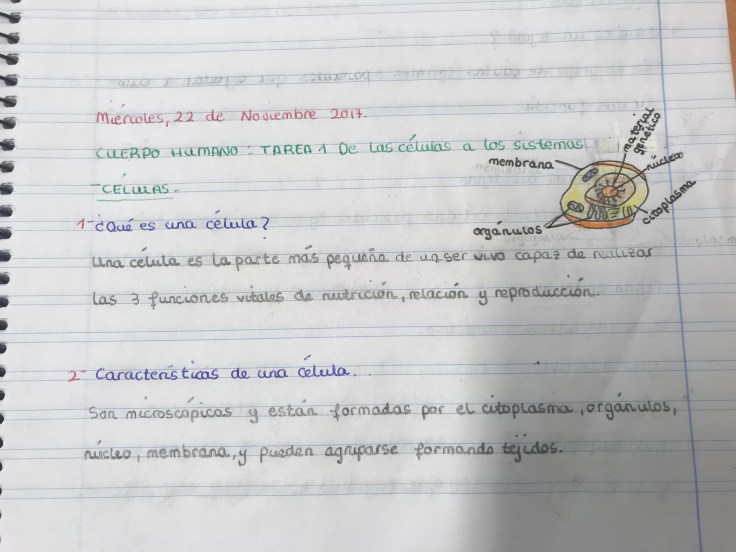 Miércoles, 22 de Noviembre 2017.
CUERPO HUMANO: TAREA 1 De las células a los sistemas
- CÉLULAS.
membrana
material genético
núcleo
citoplasma
orgánulos
1- ¿Qué es una célula?
Una célula es la parte más pequeña de un ser vivo capaz de realizar
las 3 funciones vitales de nutrición, relación y reproducción.
2- Características de una célula.
Son microscópicas y están formadas por el citoplasma, orgánulos,
núcleo, membrana, y pueden agruparse formando tejidos.